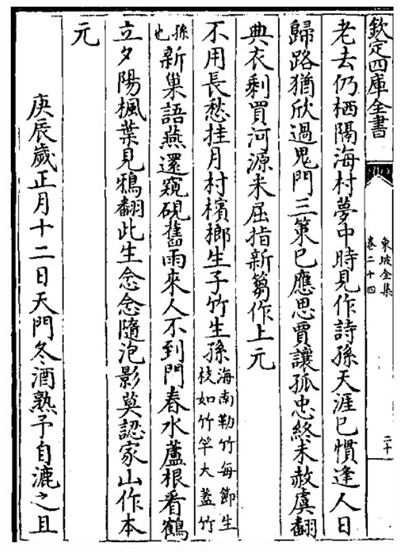 欽定四庫全書
東坡全集
卷二十四
二十
老去仍栖隔海村夢中時見作詩孫天涯已慣逢人日
歸路猶欣過鬼門三策已應思賈讓孤忠終未赦虞翻
典衣剩買河源米屈指新篘作上元
不用長愁挂月村檳榔生子竹生孫海南勒竹每節生枝如竹竿大蓋竹
孫也新巢語燕還窺硯舊雨來人不到門春水蘆根看鶴
立夕陽楓葉見鴉翻此生念念隨泡影莫認家山作本
元
庚辰歲正月十二日天門冬酒熟予自漉之且